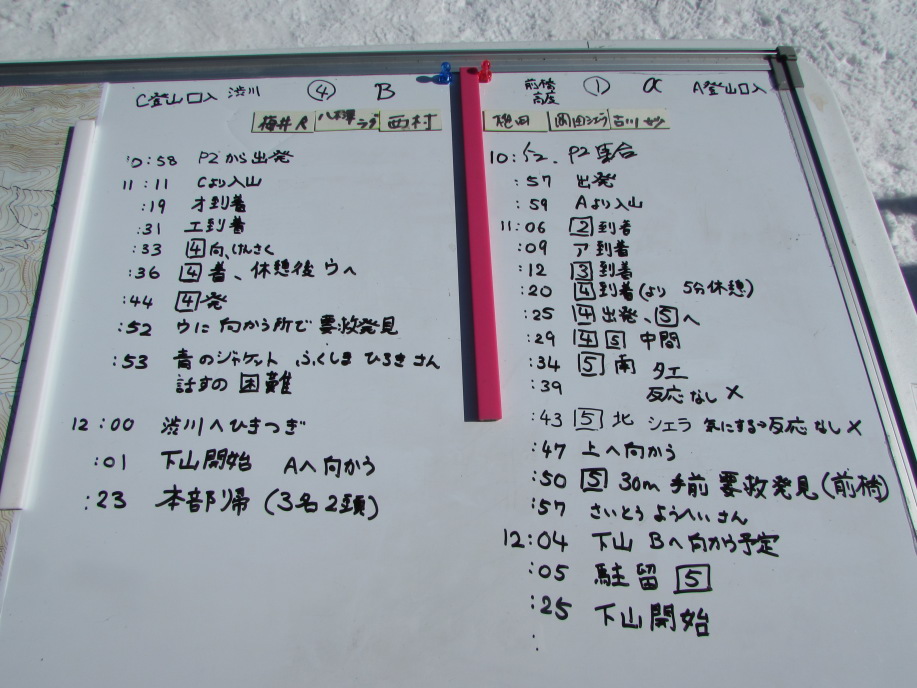 C登山口入 渋川 ④ B
梅井 八木澤 ラブ 西村
0:58 P2から出発
11:11 Cより入山
:19 オ到着
:31 エ到着
:33 4向、けんさく
:36 4着、休憩後ウへ
:44 4発
:52 ウに向かう所で要救発見
:53 青のジャケット ふくしまひろきさん
話すの困難
12:00 渋川へひきつぎ
:01 下山開始 Aへ向かう
:23 本部帰(3名2頭)
前橋
高度 ① α A登山口入
田 シェラ 古川 妙
10:52. P2集合
:57 出発
:59 Aより入山
11:06 2到着
:09 ア到着
:12 3到着
:20 4到着(より 5分休憩)
:25 4出発、5へ
:29 4 5 中間
:34 5南 タエ
:39 反応なし×
:43 5北 シェラ 気にする→反応なし×
:47 上へ向かう
:50 5 30m手前 要救発見(前橋)
:57 さいとうようへいさん
12:04 下山 Bへ向かう予定
:05 駐留 5
:25 下山開始